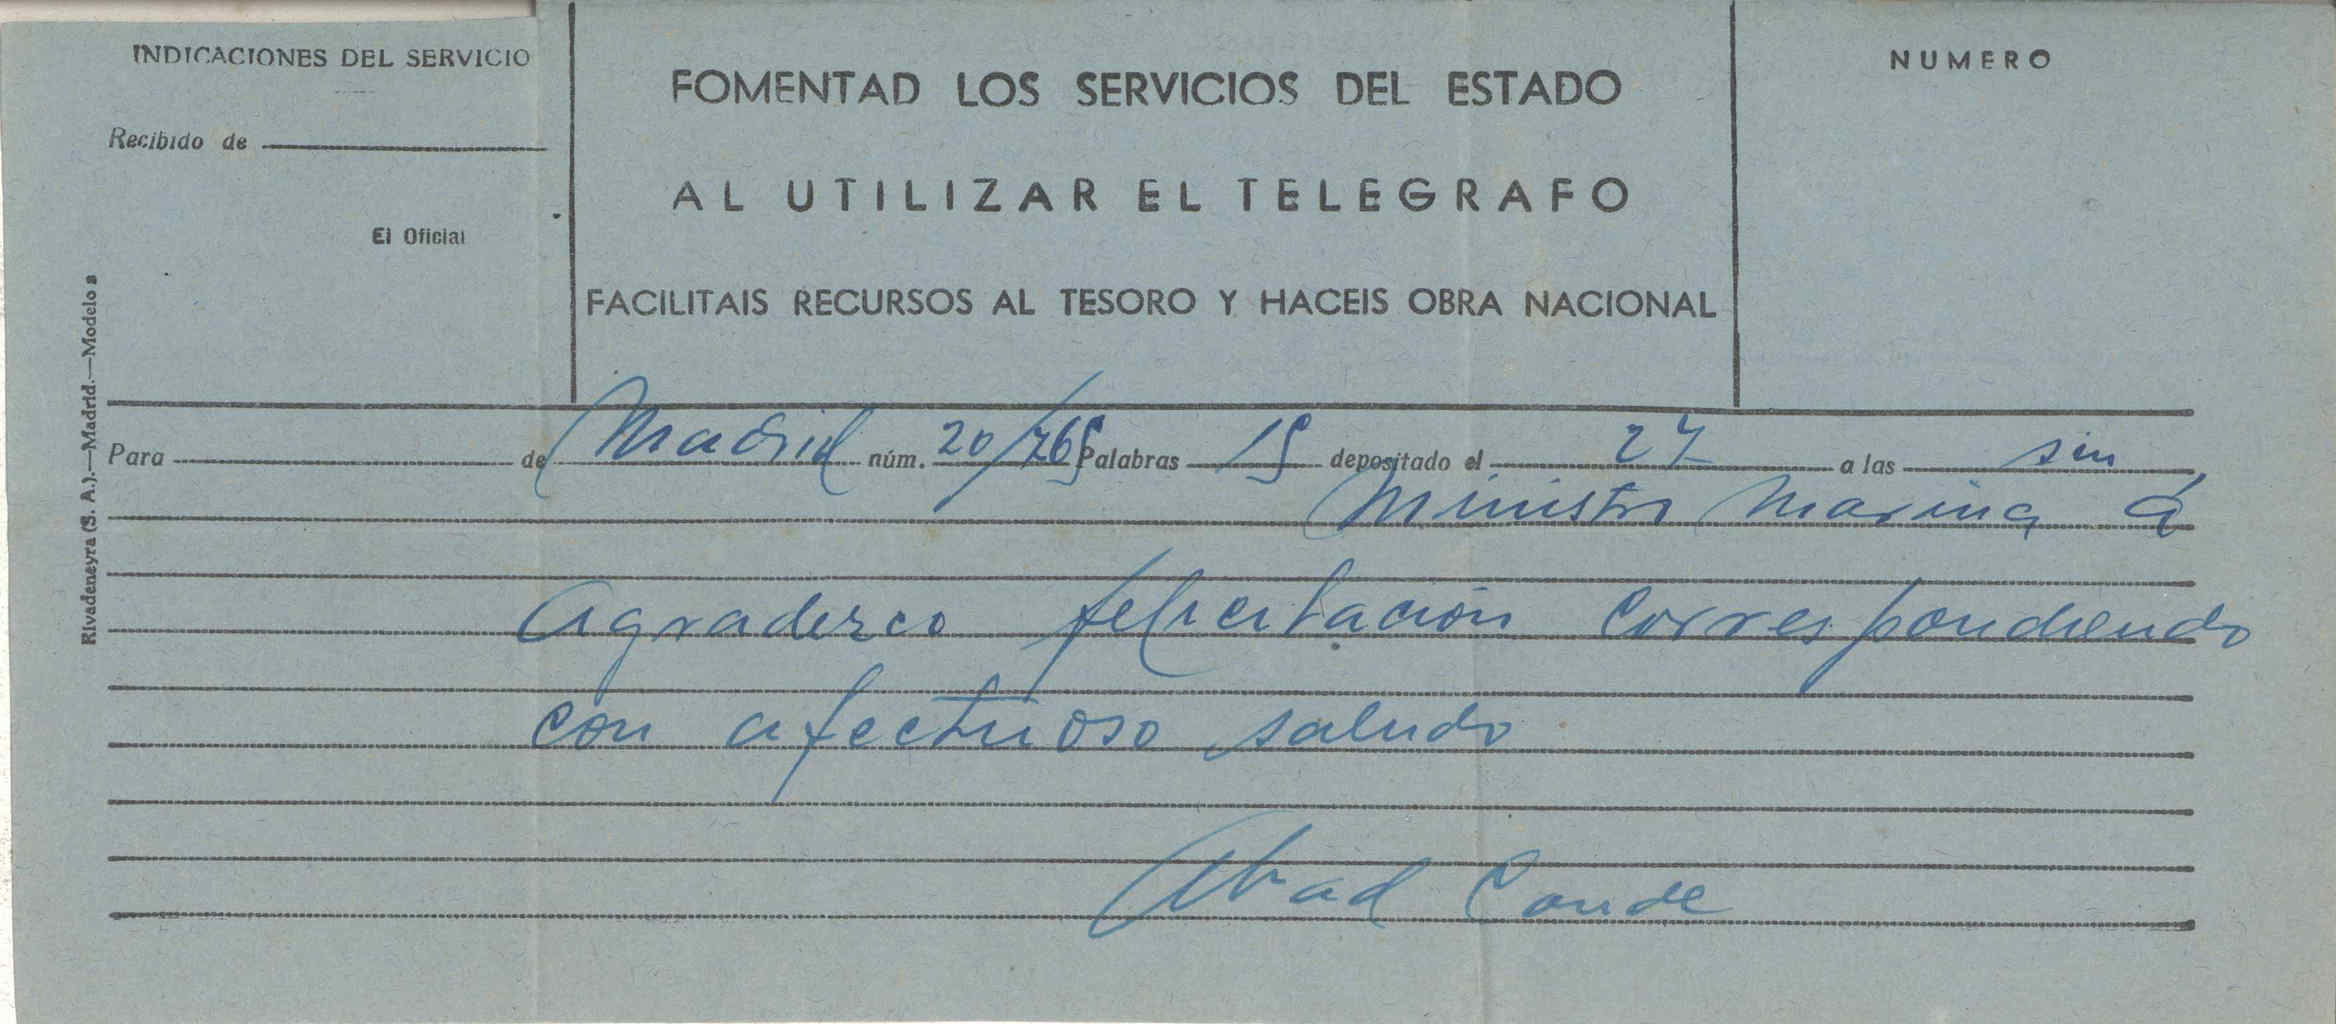 INDICACIONES DEL SERVICIO
Recibido de
El Oficial
FOMENTAD LOS SERVICIOS DEL ESTADO
AL UTILIZAR EL TELEGRAFO
FACILITAIS RECURSOS AL TESORO Y HACEIS OBRA NACIONAL
NUMERO
Rivadeneyra (S. A.).—Madrid.—Modelo
Para de Madrid núm. 20/265 Palabras 15 depositado el 27 a las sin
Ministro Marina á
Agradezco felicitación correspondiendo
con afectuoso saludo
Abad Conde